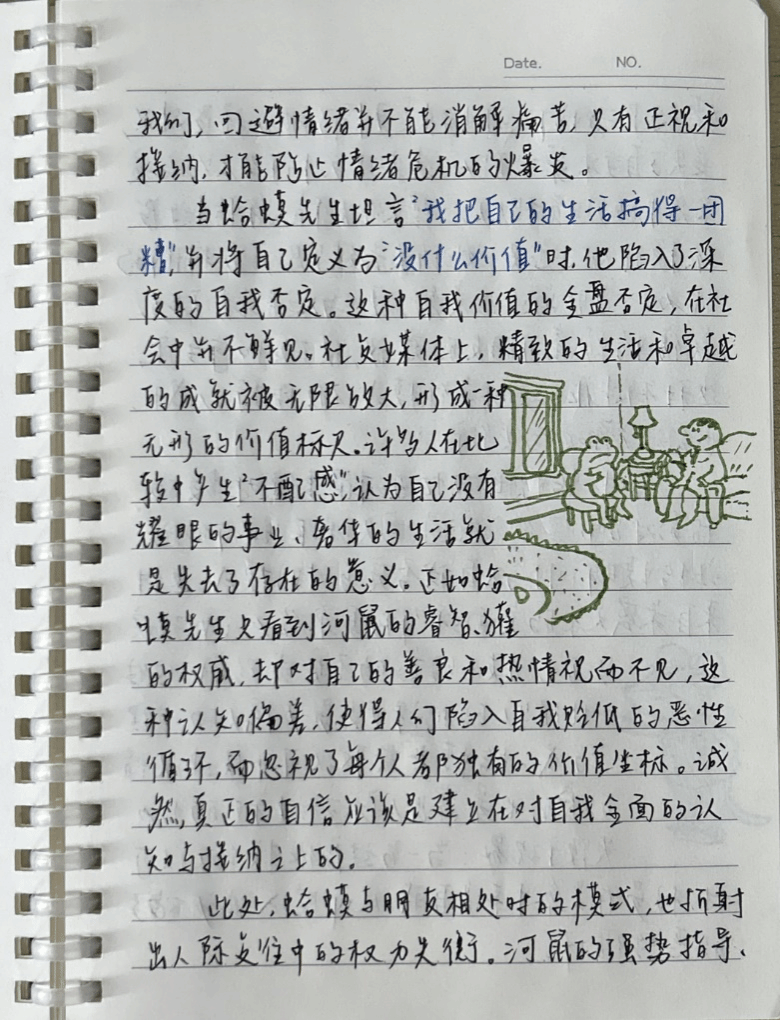 Date. NO.
我们,回避情绪并不能消解痛苦,只有正视和
接纳,才能防止情绪危机的爆发。
当蛤蟆先生坦言“我把自己的生活搞得一团
糟”,并将自己定义为“没什么价值”时,他陷入了深
度的自我否定。这种自我价值的全盘否定,在社
会中并不鲜见。社交媒体上,精致的生活和卓越
的成就被无限放大,形成一种
无形的价值标尺。许多人在比
较中产生“不配感”,认为自己没有
耀眼的事业、奢华的生活就
是失去了存在的意义。正如蛤
蟆先生只看到河鼠的睿智、獾
的权威,却对自己的善良和热情视而不见,这
种认知偏差,使得人们陷入自我贬低的恶性
循环,而忽视了每个人都独有的价值坐标。诚
然,真正的自信应该是建立在对自我全面的认
知与接纳之上的。
此处,蛤蟆与朋友相处时的模式,也折射
出人际交往中的权力失衡。河鼠的强势指导、